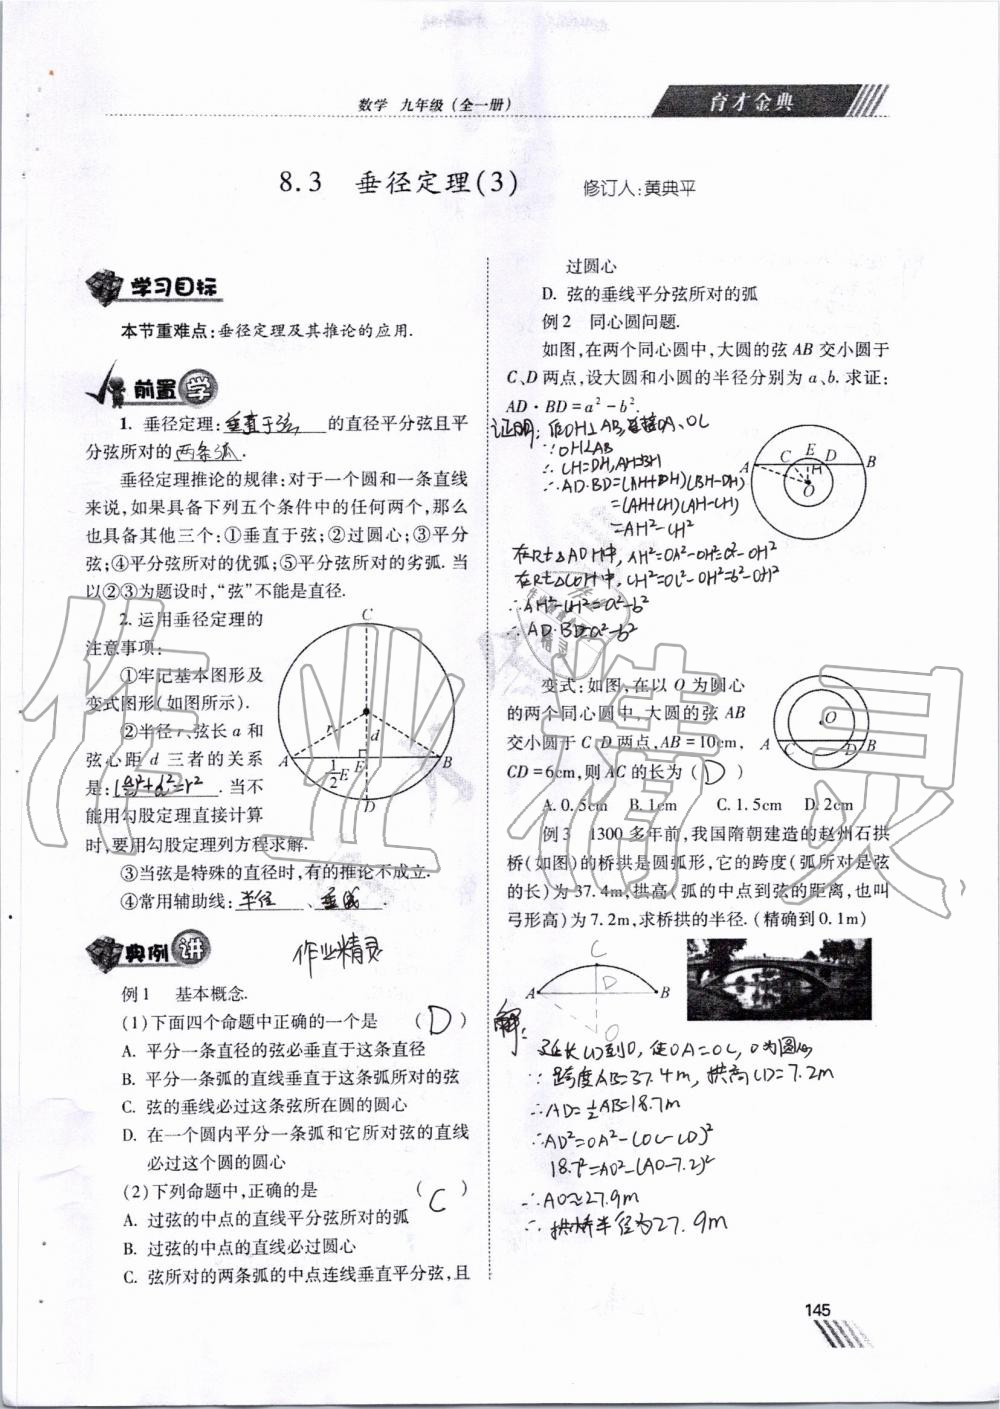 数学 九年级(全一册)
育才金典
8.3 垂径定理(3)
修订人:黄典平
学习目标
本节重难点:垂径定理及其推论的应用.
前置 学
1. 垂径定理:垂直于弦 的直径平分弦且平
分弦所对的 两条弧 .
垂径定理推论的规律:对于一个圆和一条直线
来说,如果具备下列五个条件中的任何两个,那么
也具备其他三个:①垂直于弦;②过圆心;③平分
弦;④平分弦所对的优弧;⑤平分弦所对的劣弧. 当
以②③为题设时,“弦”不能是直径.
2. 运用垂径定理的
注意事项:
①牢记基本图形及
变式图形(如图所示).
②半径 r、弦长 a 和
弦心距 d 三者的关系
是:(a/2)²+d²=r² . 当不
能用勾股定理直接计算
时,要用勾股定理列方程求解.
C
r
d
A
E
B
1/2 E
D
③当弦是特殊的直径时,有的推论不成立.
④常用辅助线: 半径 、 垂线 .
典例 讲
作业精灵
例1 基本概念.
(1)下面四个命题中正确的一个是 ( D )
A. 平分一条直径的弦必垂直于这条直径
B. 平分一条弧的直线垂直于这条弧所对的弦
C. 弦的垂线必过这条弦所在圆的圆心
D. 在一个圆内平分一条弧和它所对弦的直线
必过这个圆的圆心
(2)下列命题中,正确的是 ( C )
A. 过弦的中点的直线平分弦所对的弧
B. 过弦的中点的直线必过圆心
C. 弦所对的两条弧的中点连线垂直平分弦,且
过圆心
D. 弦的垂线平分弦所对的弧
例2 同心圆问题.
如图,在两个同心圆中,大圆的弦 AB 交小圆于
C、D 两点,设大圆和小圆的半径分别为 a、b. 求证:
AD·BD=a²-b².
证明:作OH⊥AB,连接OA、OC
∵OH⊥AB
∴CH=DH,AH=BH
∴AD·BD=(AH+DH)(BH-DH)
=(AH+CH)(AH-CH)
=AH²-CH²
在Rt△AOH中,AH²=OA²-OH²=a²-OH²
在Rt△COH中,CH²=OC²-OH²=b²-OH²
∴AH²-CH²=a²-b²
∴AD·BD=a²-b²
E
C
D
A
H
B
O
变式:如图,在以 O 为圆心
的两个同心圆中,大圆的弦 AB
交小圆于 C D 两点,AB=10cm,
CD=6cm,则 AC 的长为 ( D )
A. 0.5cm B. 1cm C. 1.5cm D. 2cm
O
A
C
D
B
例3 1300 多年前,我国隋朝建造的赵州石拱
桥(如图)的桥拱是圆弧形,它的跨度(弧所对是弦
的长)为 37.4m,拱高(弧的中点到弦的距离,也叫
弓形高)为 7.2m,求桥拱的半径. (精确到 0.1m)
C
D
A
B
O
解:
延长CD到O,使OA=OC,O为圆心
∵跨度AB=37.4m,拱高CD=7.2m
∴AD=½AB=18.7m
∴AD²=OA²-(OC-CD)²
18.7²=AO²-(AO-7.2)²
∴AO≈27.9m
∴拱桥半径为27.9m
145
作业精灵